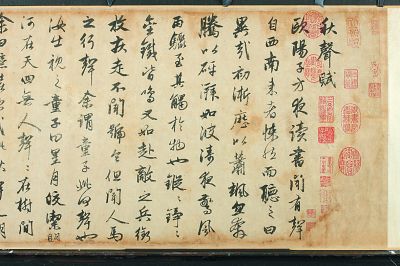 秋聲賦
歐陽子方夜讀書聞有聲
自西南來者悚然而聽之曰
異哉初淅瀝以蕭颯忽奔
騰以砰湃如波濤夜驚風
雨驟至其觸於物也鏦〻錚〻
金鐵皆鳴又如赴敵之兵銜
枚疾走不聞號令但聞人馬
之行聲余謂童子此何聲也
汝出視之童子曰星月皎潔明
河在天四無人聲〻在樹間